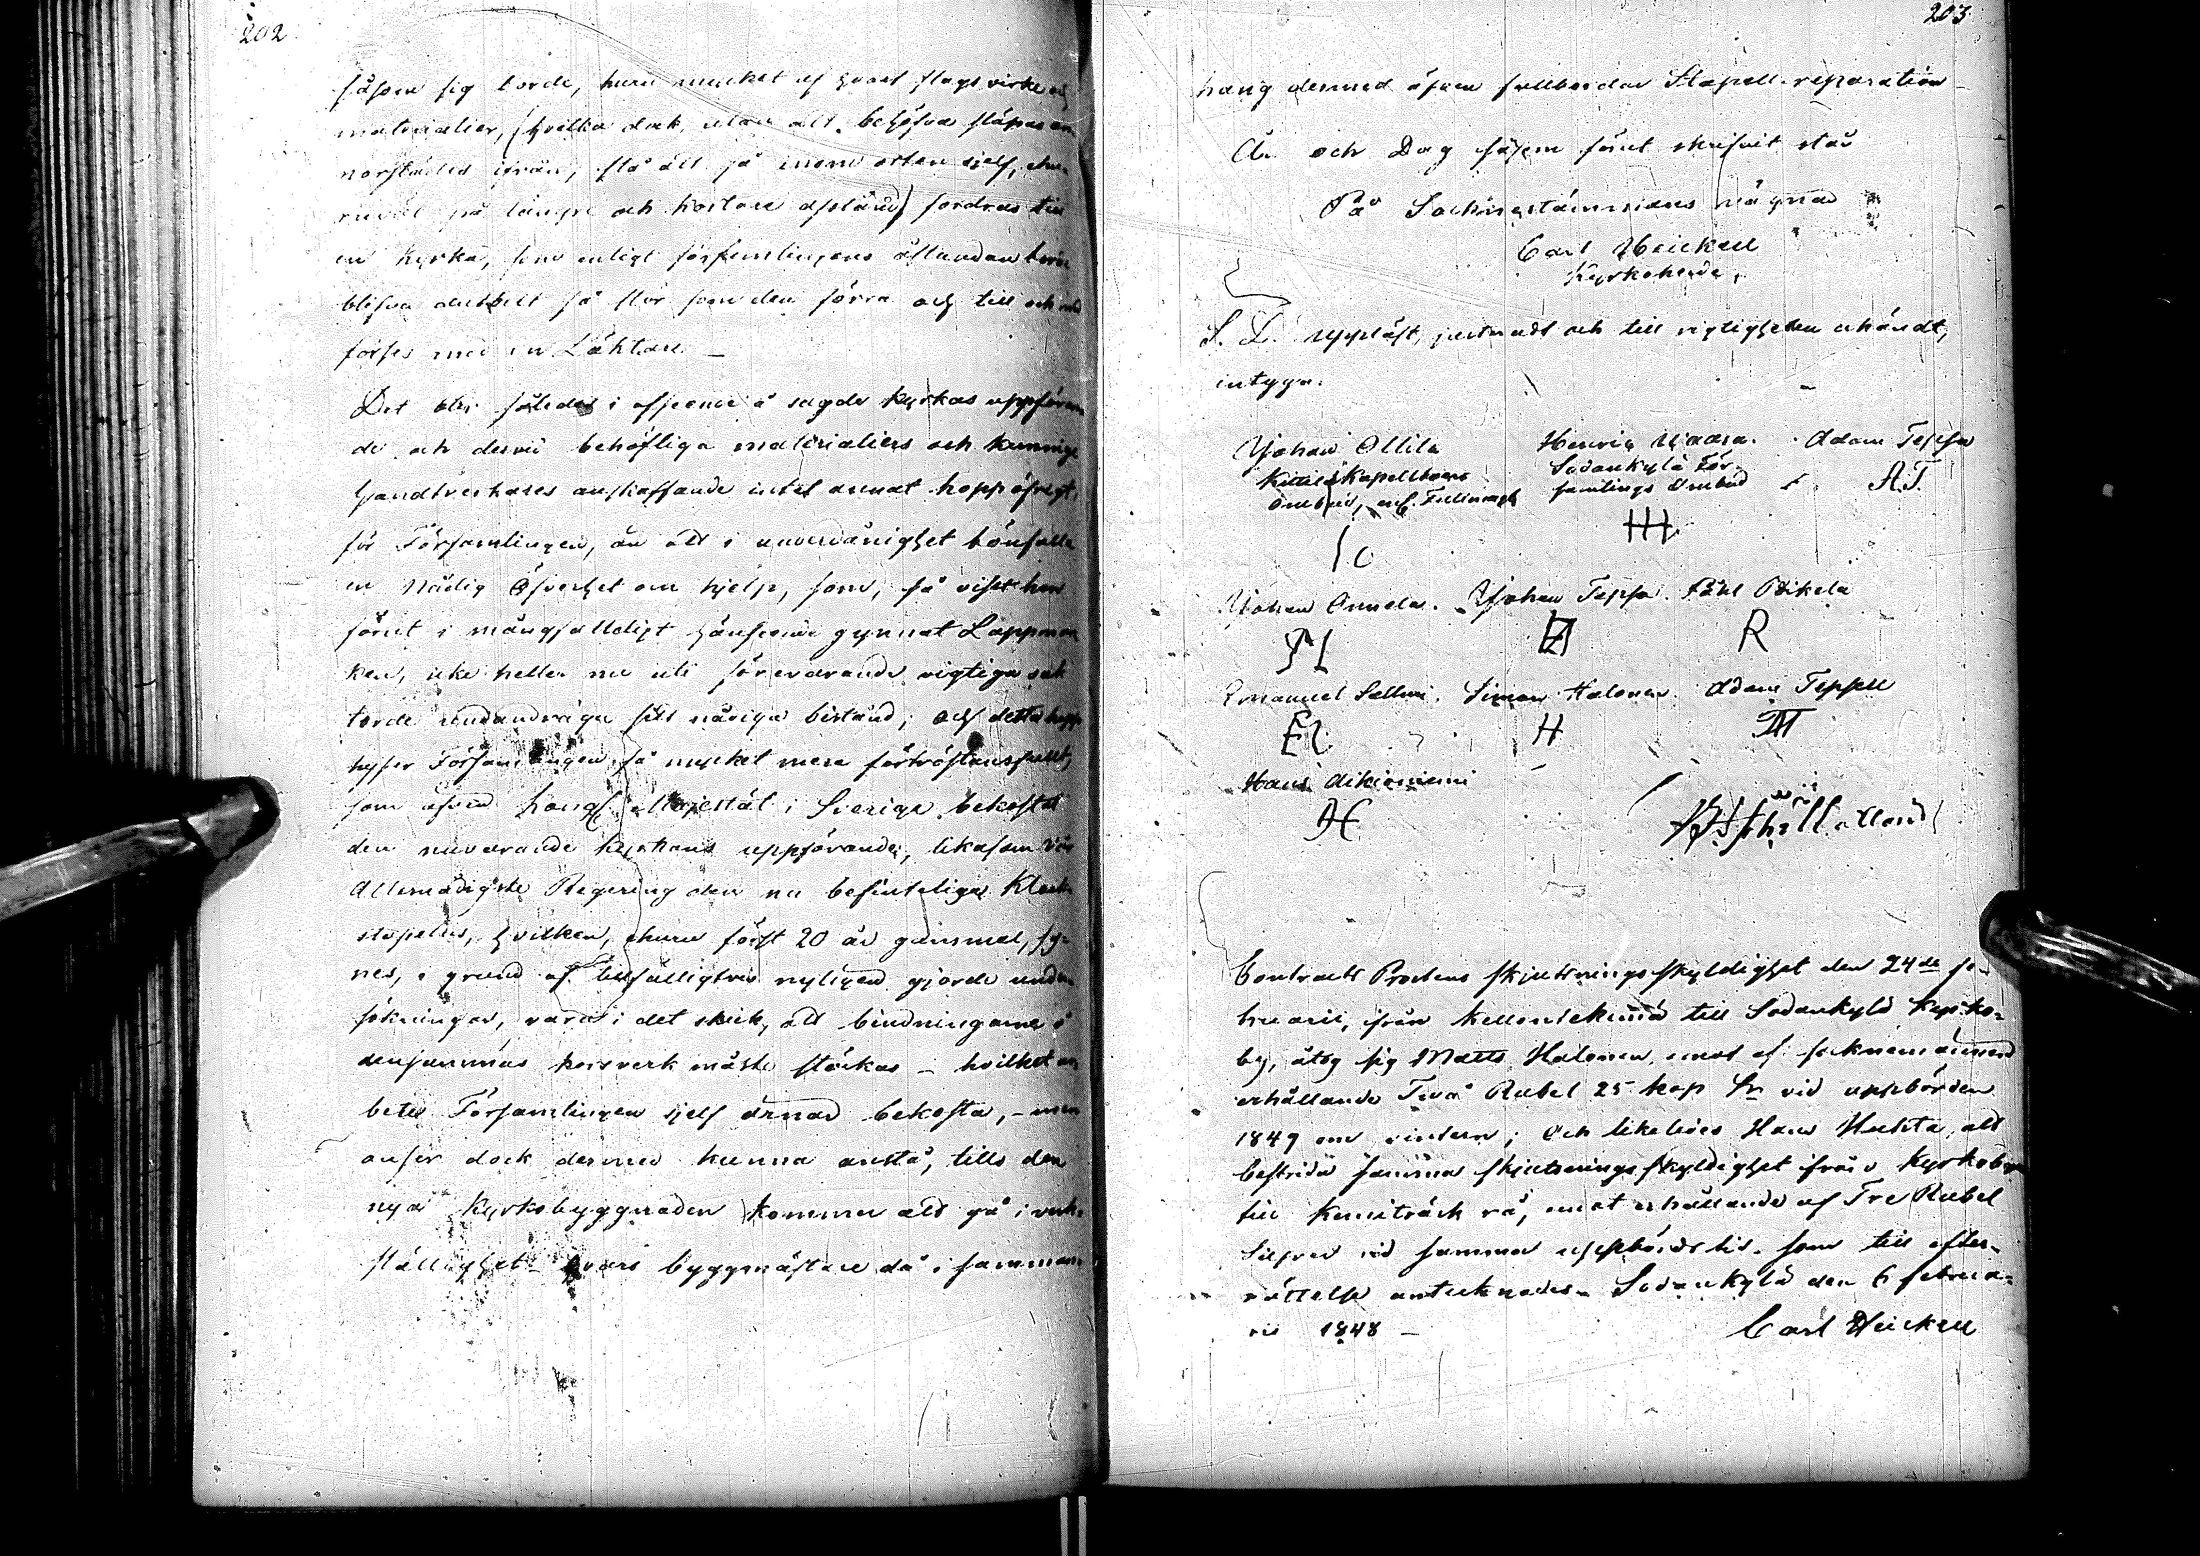 202
såsom sig borde, huru mycket af hvart slags virke och
materialier, (hvilka dock, utan att behöfva släpas an-
norstädes ifrån, stå att få inom orten sjelf, ehu-
ruväl på längre och kortare afstånd) fordras till
en Kyrka, som enligt församlingens åstundan borde
blifva dubbelt så stor som den förra och till och med
förses med en Läktare. —
Det blir således i afseende å sagde Kyrkas uppföran-
de och dervid behöfliga materialiers och kunnige
handtverkares anskaffande intet annat hopp öfrigt,
för Församlingen, än att i underdånighet bönfalla
en Nådig Öfverhet om hjelp, som, så visst hon
förut i mångfalldigt hänseende gynnat Lappmar-
ken, icke heller nu uti förevarande vigtiga sak
torde undandraga sitt nådiga bistånd; och detta hopp
hyser Församlingen så mycket mera förtröstansfullt,
som äfven Kongl. Majestät i Sverige bekostat
den nuvarande Kyrkans uppförande, likasom Vår
Allernådigste Regering den nu befinteliga Klock-
stapelns, hvilken, ehuru först 20 år gammal, sy-
nes, i grund af tillfälligtvis nyligen gjorde under-
sökningar, vara i det skick, att bindningarne i
densammas korsverk måste stärkas – hvilket ar-
bete Församlingen sjelf ärnar bekosta, – men
anser dock dermed kunna anstå, tills den
nya Kyrkobyggnaden kommer att gå i verk-
ställighet hvars byggmästare då i samman-
203
hang dermed äfven fullbordar Stapell-reparation –
År och Dag såsom förut skrifvit står
På Sockenestämmans vägnar
Carl Heickell
Kyrkoherde.
S. D. uppläst, justeradt och till rigtigheten erkändt,
intyga.
Johan Ollila
Kittilä Kapellboers
Ombud, enl. Fullmagt
Henric
Sodankylä För-
samlings Ombud
Adam Teppo
A.T.
HH
Johan Onnela. Johan Teppo. Påhl Pikela
R
Emanuel Sallmi. Simon Halonen. Adam Teppell
H
Hans Aikioniemi
Contracts Prostens skjutsningsskyldighet den 24de fe-
bruarii, ifrån Kellontekemä till Sodankylä Kyrko-
by, åtog sig Matts Halonen, emot af socknemännen
erhållande Två Rubel 25 kop Sr vid uppbörden
1849 om vintern; Och likaledes Hans Huhta, att
bestrida samma skjutsningsskyldighet ifrån Kyrkobyn
till Kemiträsk rå, emot erhållande af Tre Rubel
Silfver vid samma uppbördstid. som till efter-
rättelse antecknades. Sodankylä den 6 februa-
rii 1848 –
Carl Heickell